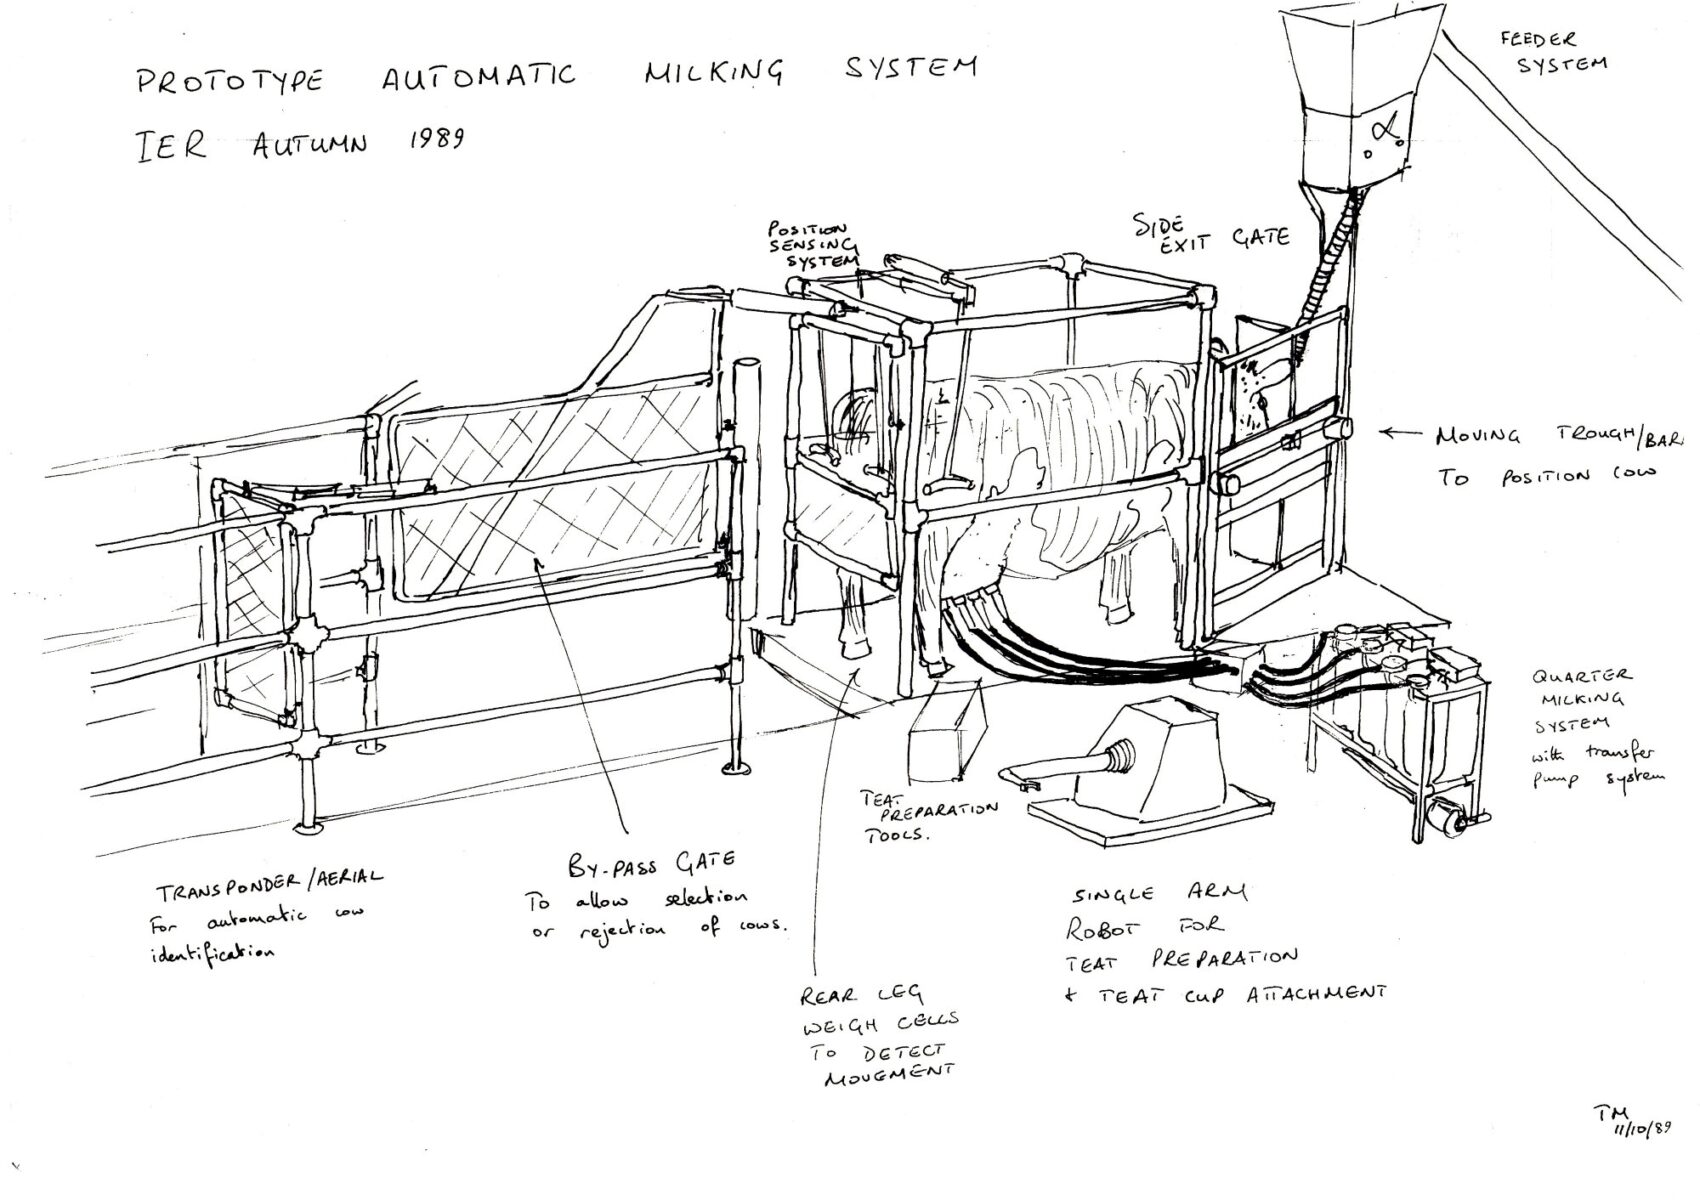 PROTOTYPE AUTOMATIC MILKING SYSTEM
IER AUTUMN 1989
FEEDER
SYSTEM
POSITION
SENSING
SYSTEM
SIDE
EXIT GATE
MOVING TROUGH/BAR
TO POSITION COW
QUARTER
MILKING
SYSTEM
with transfer
pump system
TEAT
PREPARATION
TOOLS.
TRANSPONDER/AERIAL
For automatic cow
identification
BY-PASS GATE
To allow selection
or rejection of cows.
REAR LEG
WEIGH CELLS
TO DETECT
MOVEMENT
SINGLE ARM
ROBOT FOR
TEAT PREPARATION
+ TEAT CUP ATTACHMENT
TM
11/10/89